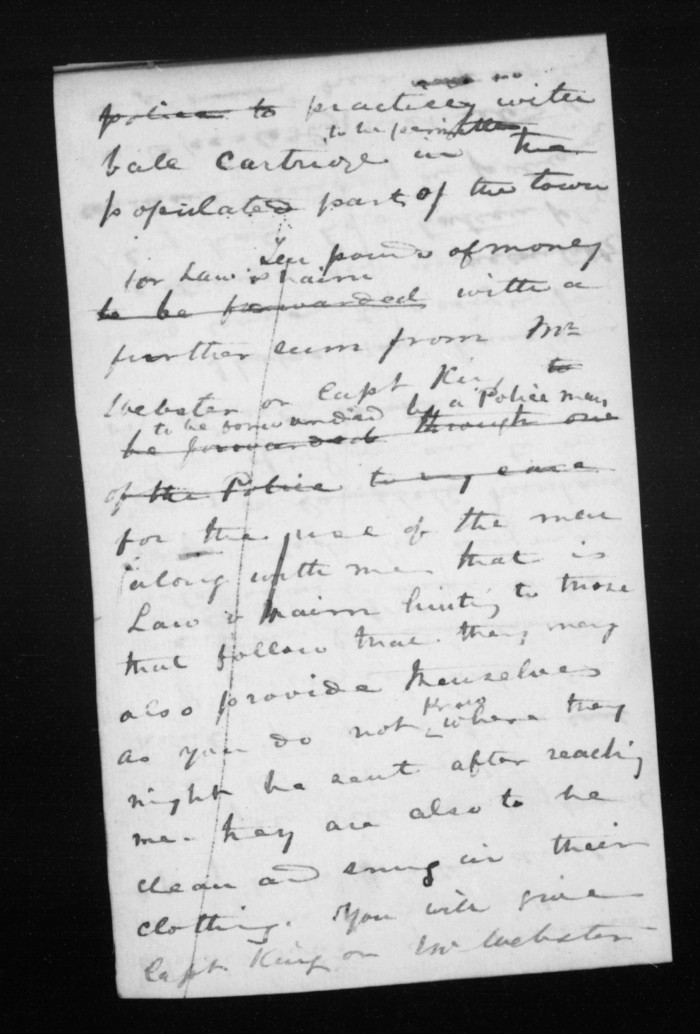 police to practice with
to be permitted
bale cartridge in the
populated part of the town
Ten pounds of money
for Law & Nairn
to be forwarded with a
further sum from Mr
Webster or Capt King to
to be forwarded by a Police man
be forwarded through one
of the Police to my care
for the use of the men
along with me that is
Law & Nairn hinting to those
that follow that they may
also provide themselves
know
as you do not where they
might be sent after reaching
me. They are also to be
clean and snug in their
clothing. You will give
Capt King or Mr Webster